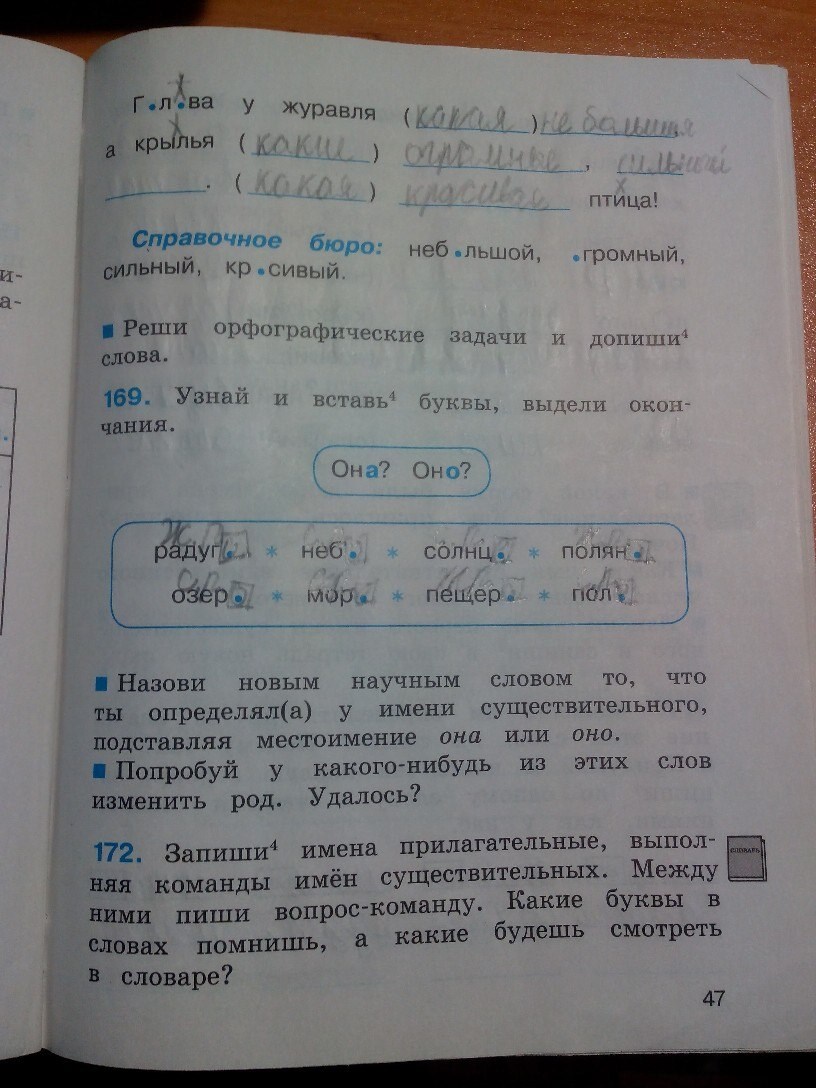 Г.л.ва у журавля (какая) небольшая
а крылья (какие) огромные, сильной
. (какая) красивая птица!
Справочное бюро: неб.льшой, .громный,
сильный, кр.сивый.
Реши орфографические задачи и допиши⁴
слова.
169. Узнай и вставь⁴ буквы, выдели окон-
чания.
Она? Оно?
радуг. * неб. * солнц. * полян.
озер. * мор. * пещер. * пол.
Назови новым научным словом то, что
ты определял(а) у имени существительного,
подставляя местоимение она или оно.
Попробуй у какого-нибудь из этих слов
изменить род. Удалось?
172. Запиши⁴ имена прилагательные, выпол-
няя команды имён существительных. Между
ними пиши вопрос-команду. Какие буквы в
словах помнишь, а какие будешь смотреть
в словаре?
СЛОВАРЬ
47
и-
а-